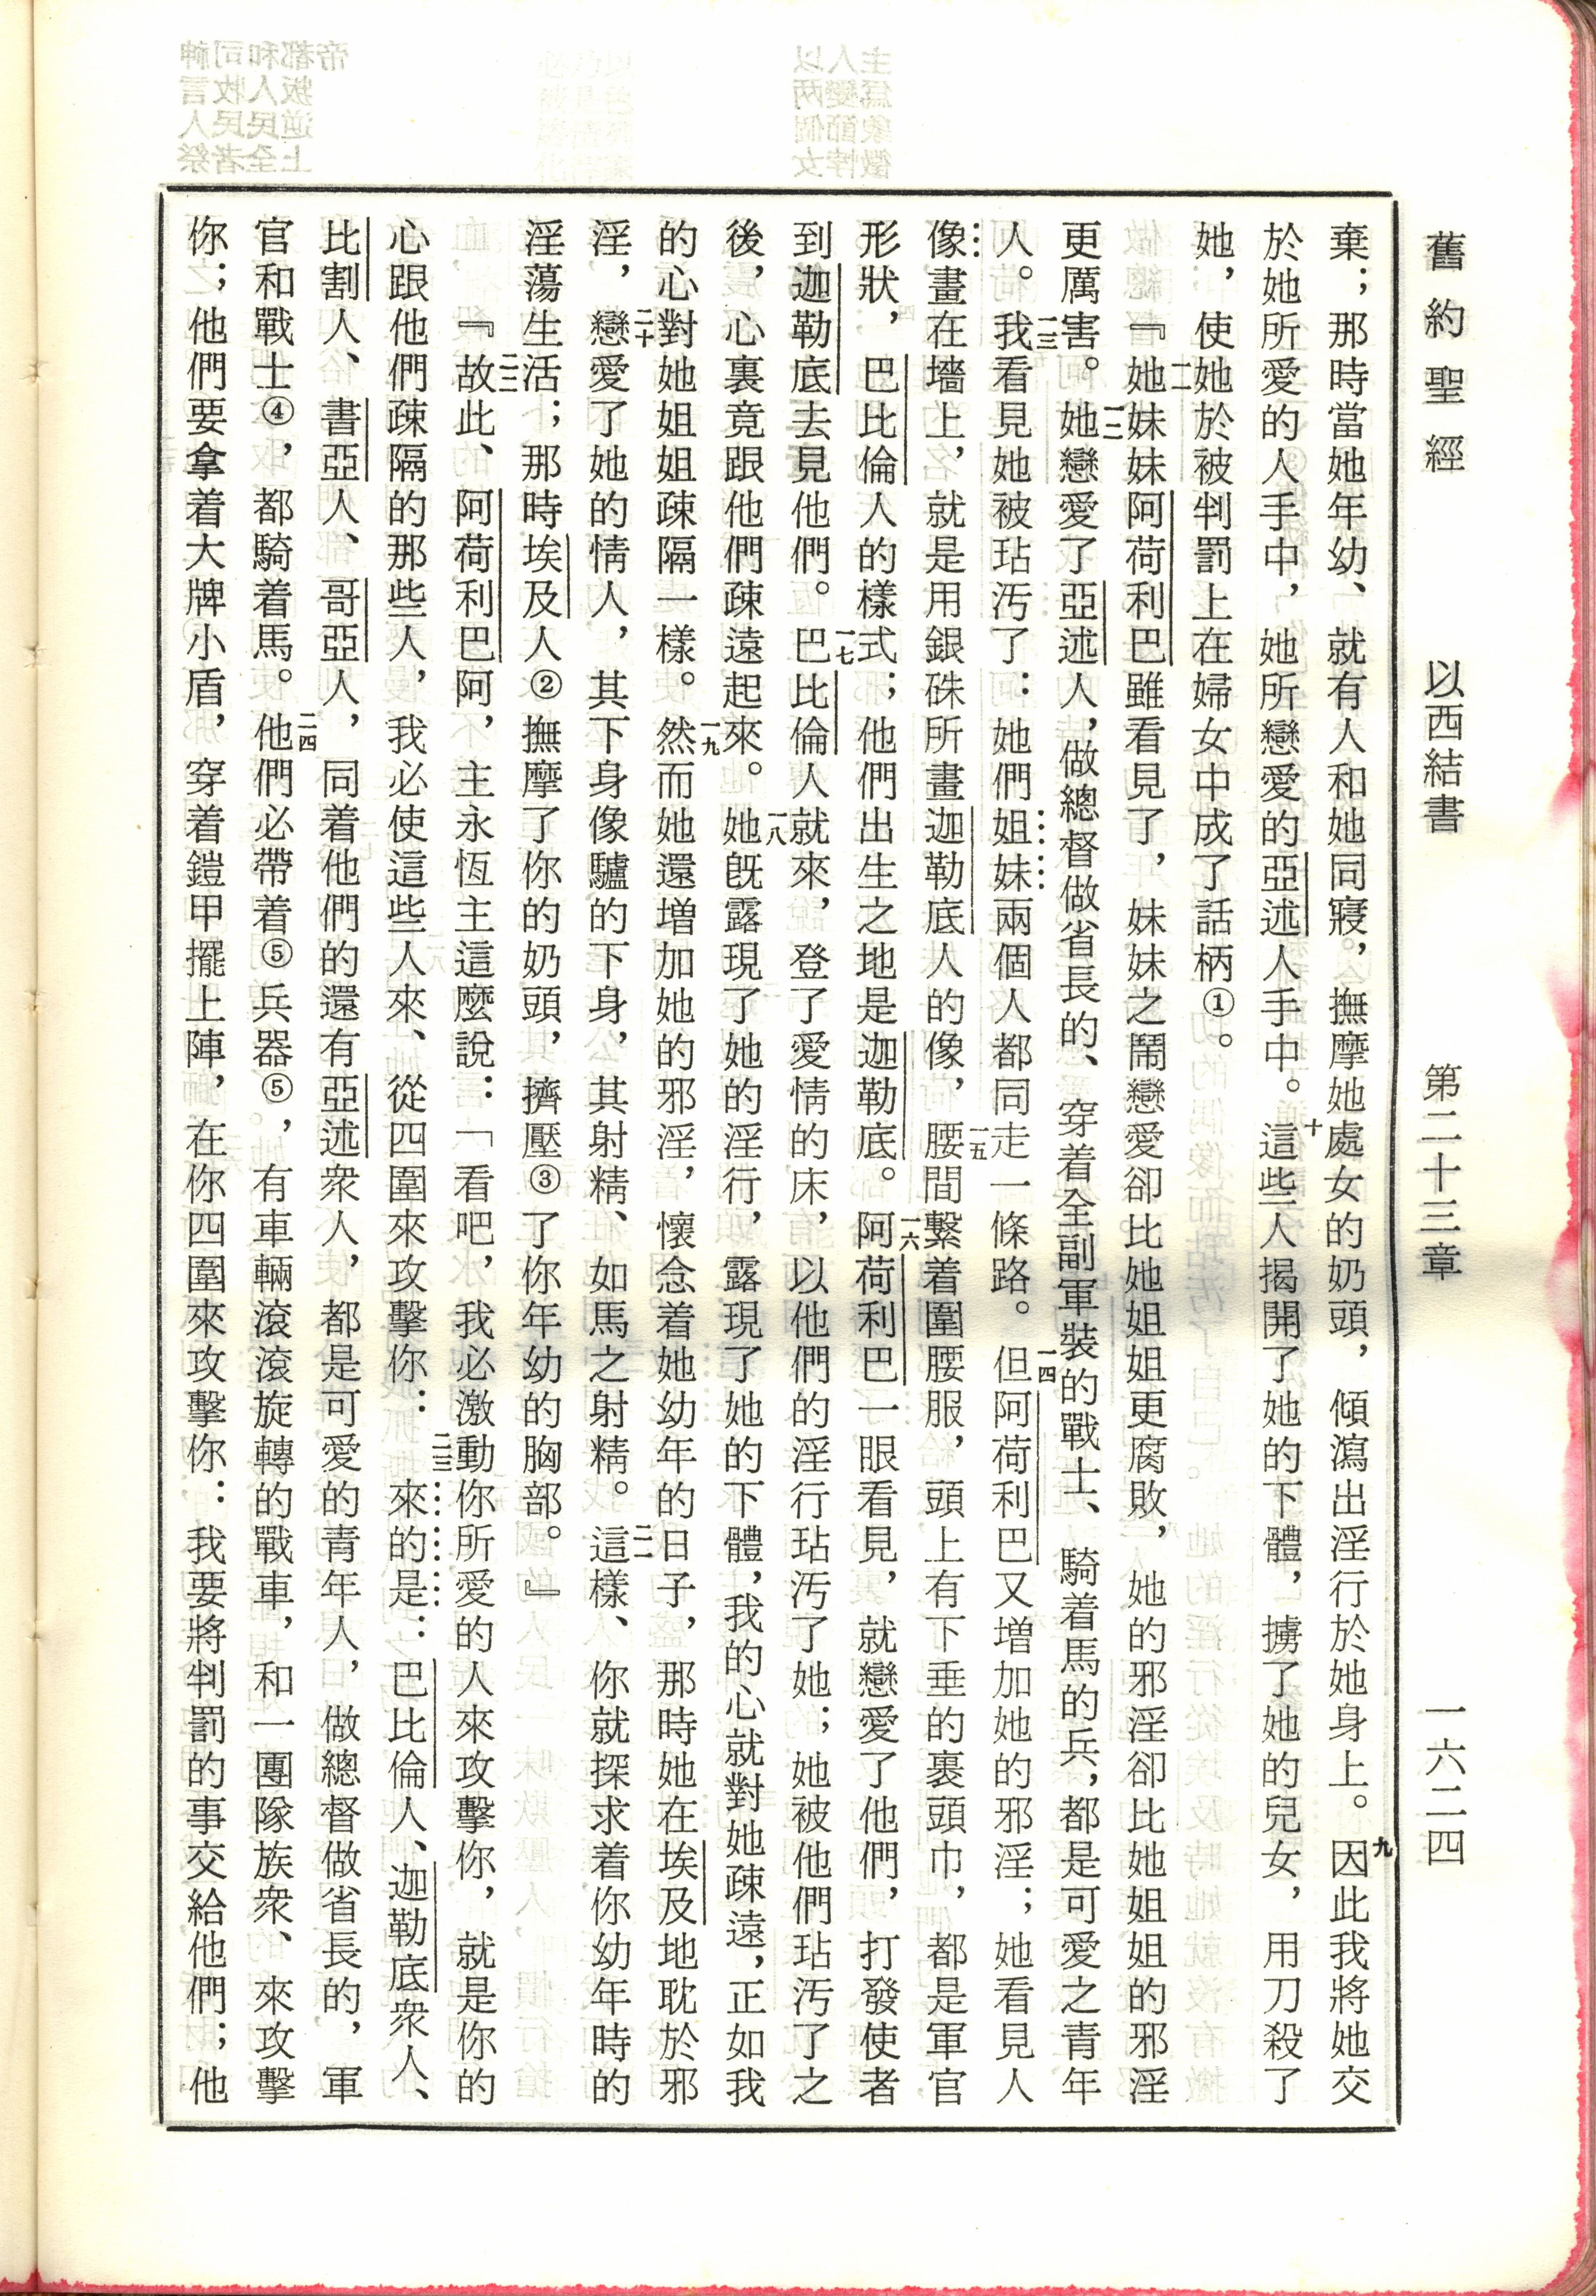 舊約聖經 以西結書 第二十三章 一六二四
棄；那時當她年幼、就有人和她同寢，撫摩她處女的奶頭，傾瀉出淫行於她身上。九因此我將她交
於她所愛的人手中，她所戀愛的亞述人手中。十這些人揭開了她的下體，擄了她的兒女，用刀殺了
她，使她於被判罰上在婦女中成了話柄①。
『十一她妹妹阿荷利巴雖看見了，妹妹之鬧戀愛卻比她姐姐更腐敗，她的邪淫卻比她姐姐的邪淫
更厲害。十二她戀愛了亞述人，做總督做省長的、穿着全副軍裝的戰士、騎着馬的兵，都是可愛之青年
人。十三我看見她被玷污了：她們姐妹兩個人都同走一條路。十四但阿荷利巴又增加她的邪淫；她看見人
像畫在墻上，就是用銀硃所畫迦勒底人的像，十五腰間繫着圍腰服，頭上有下垂的裹頭巾，都是軍官
形狀，巴比倫人的樣式；他們出生之地是迦勒底。十六阿荷利巴一眼看見，就戀愛了他們，打發使者
到迦勒底去見他們。十七巴比倫人就來，登了愛情的床，以他們的淫行玷污了她；她被他們玷污了之
後，心裏竟跟他們疎遠起來。十八她旣露現了她的淫行，露現了她的下體，我的心就對她疎遠，正如我
的心對她姐姐疎隔一樣。十九然而她還增加她的邪淫，懷念着她幼年的日子，那時她在埃及地耽於邪
淫，二十戀愛了她的情人，其下身像驢的下身，其射精、如馬之射精。二一這樣、你就探求着你幼年時的
淫蕩生活；那時埃及人②撫摩了你的奶頭，擠壓③了你年幼的胸部。』
『二二故此、阿荷利巴阿，主永恆主這麼說：「看吧，我必激動你所愛的人來攻擊你，就是你的
心跟他們疎隔的那些人，我必使這些人來、從四圍來攻擊你：二三來的是：巴比倫人、迦勒底衆人、
比割人、書亞人、哥亞人，同着他們的還有亞述衆人，都是可愛的青年人，做總督做省長的，軍
官和戰士④，都騎着馬。二四他們必帶着⑤兵器⑤，有車輛滾滾旋轉的戰車，和一團隊族衆、來攻擊
你；他們要拿着大牌小盾，穿着鎧甲擺上陣，在你四圍來攻擊你：我要將判罰的事交給他們；他